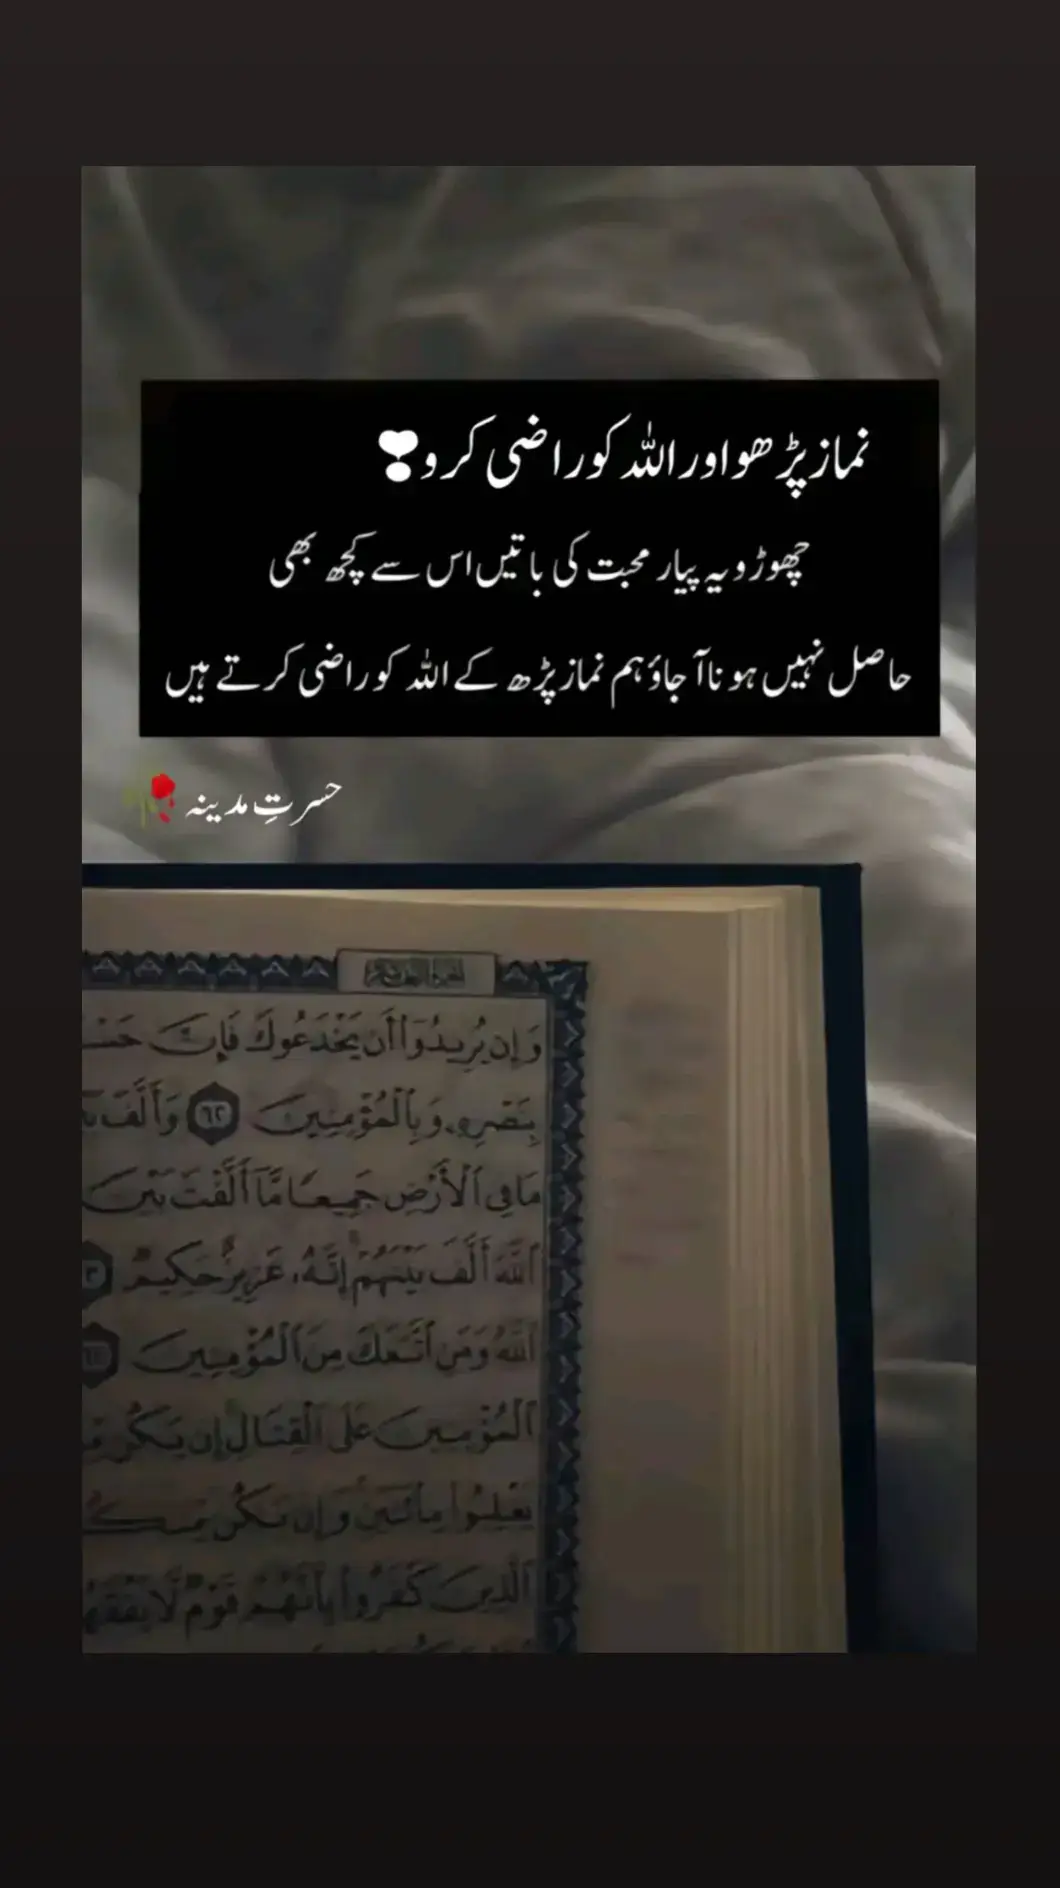 نماز پڑھو اور اللہ کو راضی کرو❣
چھوڑو یہ پیار محبت کی باتیں اس سے کچھ بھی
حاصل نہیں ہونا آ جاؤ ہم نماز پڑھ کے اللہ کو راضی کرتے ہیں
حسرتِ مدینہ🥀
وَإِن يُرِيدُوٓا۟ أَن يَخْدَعُوكَ فَإِنَّ
بِنَصْرِهِۦ وَبِٱلْمُؤْمِنِينَ ٦٢ وَأَلَّفَ
مَا فِى ٱلْأَرْضِ جَمِيعًا مَّآ أَلَّفْتَ بَيْنَ
ٱللَّهَ أَلَّفَ بَيْنَهُمْ إِنَّهُۥ عَزِيزٌ حَكِيمٌ
ٱللَّهُ وَمَنِ ٱتَّبَعَكَ مِنَ ٱلْمُؤْمِنِينَ
ٱلْمُؤْمِنِينَ عَلَى ٱلْقِتَالِ إِن يَكُن
يَغْلِبُوا۟ مِا۟ئَتَيْنِ وَإِن يَكُن
ٱلَّذِينَ كَفَرُوا۟ بِأَنَّهُمْ قَوْمٌ لَّا